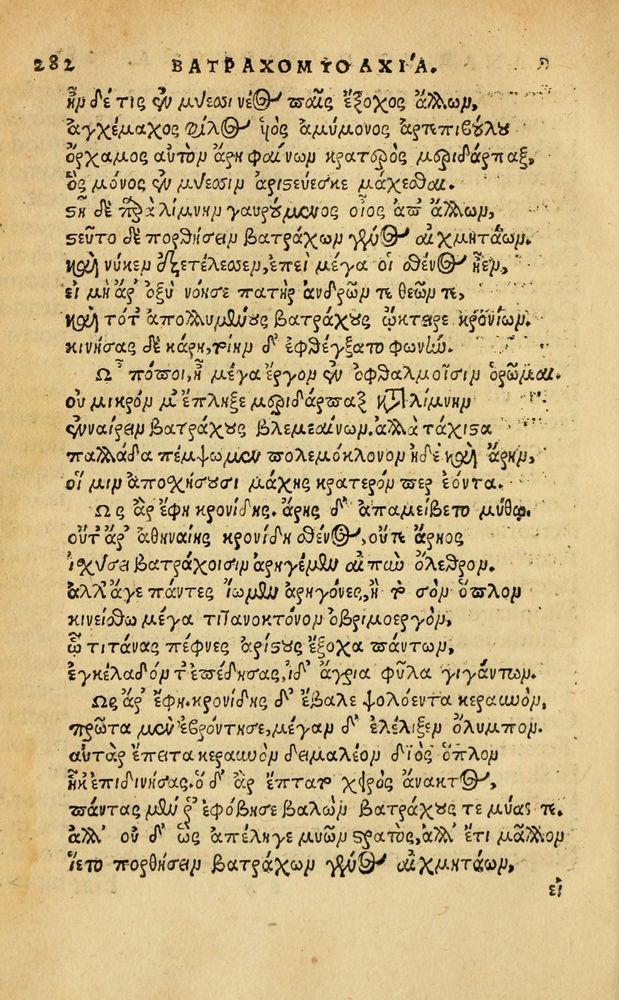 282 ΒΑΤΡΑΧΟΜΥΟΑΧΙ'Α.
ἦν δέ τις ἐν μύεσσι νέος παῖς ἔξοχος ἄλλων,
ἀγχέμαχος φίλος υἱὸς ἀμύμονος ἀρτεπιβούλου
ὄρχαμος αὐτὸν ἄρη φαίνων κρατερὸς μεριδάρπαξ,
ὃς μόνος ἐν μύεσσιν ἀριστεύεσκε μάχεσθαι.
στῆ δὲ παρὰ λίμνην γαυρούμενος οἶος ἀπ' ἄλλων,
στεῦτο δὲ πορθήσειν βατράχων γένος αἰχμητάων.
καὶ νύκεν ἐξετέλεσσεν, ἐπεὶ μέγα οἱ σθένος ἦεν,
εἰ μὴ ἄρ' ὀξὺ νόησε πατὴρ ἀνδρῶν τε θεῶν τε,
καὶ τότ' ἀπολλυμένους βατράχους ᾤκτειρε κρονίων.
κινήσας δὲ κάρη, τοίην δ' ἐφθέγξατο φωνήν.
Ὢ πόποι, ἦ μέγα ἔργον ἐν ὀφθαλμοῖσιν ὁρῶμαι.
οὐ μικρόν μ' ἔπληξε μεριδάρπαξ κατὰ λίμνην
ἐναίρειν βατράχους βλεμεαίνων. ἀλλὰ τάχιστα
παλλάδα πέμψωμεν πολεμόκλονον ἠδὲ καὶ ἄρην,
οἵ μιν ἀποσχήσουσι μάχης κρατερόν περ ἐόντα.
Ὣς ἄρ' ἔφη κρονίδης. ἄρης δ' ἀπαμείβετο μύθῳ.
οὔτ' ἄρ' ἀθηναίης κρονίδη σθένος, οὔτε ἄρηος
ἰσχύσει βατράχοισιν ἀρηγέμεν αἰπὺν ὄλεθρον.
ἀλλ' ἄγε πάντες ἴωμεν ἀρηγόνες, ἢ τὸ σὸν ὅπλον
κινείσθω μέγα τιτανοκτόνον ὀβριμοεργόν,
ᾧ τιτάνας πέφνες ἀρίστους ἔξοχα πάντων,
ἐγκέλαδόν τ' ἐπέδησας, ἰδ' ἄγρια φῦλα γιγάντων.
Ὣς ἄρ' ἔφη. κρονίδης δ' ἔβαλε ψολόεντα κεραυνόν,
πρῶτα μὲν ἐβρόντησε, μέγαν δ' ἐλέλιξεν ὄλυμπον.
αὐτὰρ ἔπειτα κεραυνὸν δειμαλέον διὸς ὅπλον
ἧκ' ἐπιδινήσας. ὁ δ' ἄρ' ἔπτατο χειρὸς ἄνακτος,
πάντας μέν ῥ' ἐφόβησε βαλὼν βατράχους τε μύας τε.
ἀλλ' οὐ δ' ὣς ἀπέληγε μυῶν στρατὸς, ἀλλ' ἔτι μᾶλλον
ἵετο πορθήσειν βατράχων γένος αἰχμητάων,
εἰ